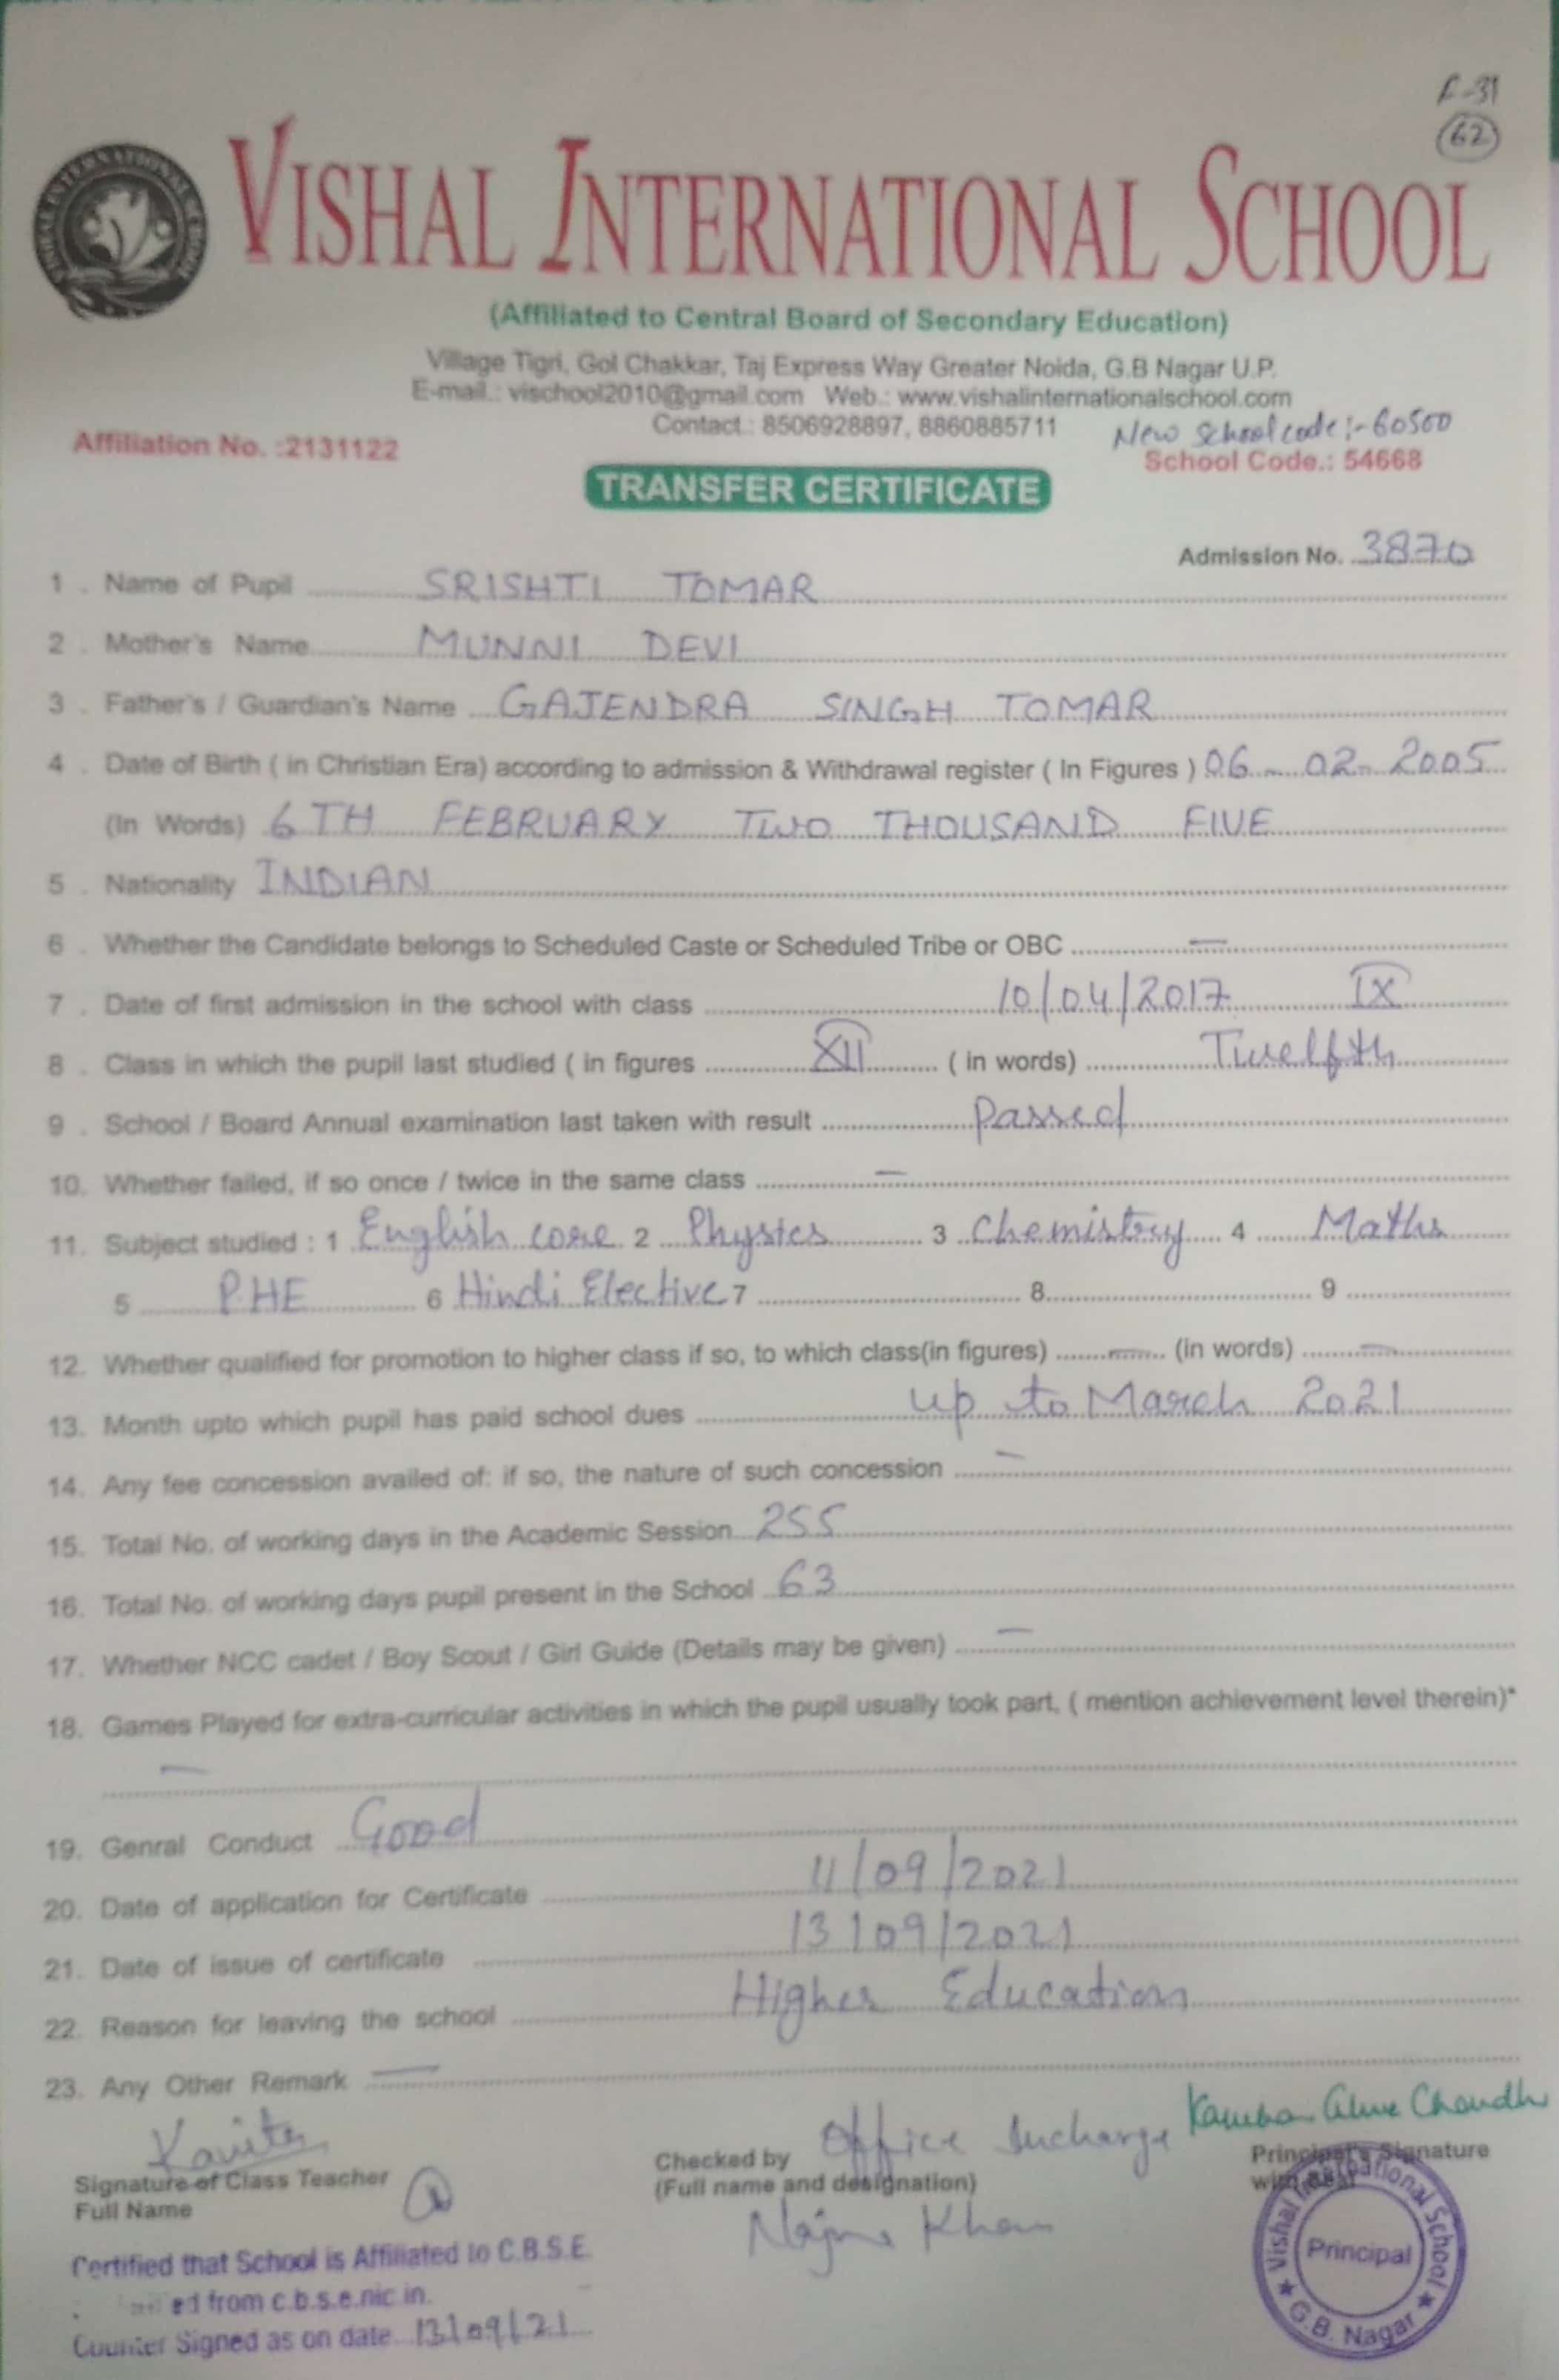 F-31
62
VISHAL INTERNATIONAL SCHOOL
(Affiliated to Central Board of Secondary Education)
Village Tigri, Gol Chakkar, Taj Express Way Greater Noida, G.B Nagar U.P.
E-mail.: vischool2010@gmail.com Web.: www.vishalinternationalschool.com
Contact.: 8506928897, 8860885711 New School code :- 60500
Affiliation No. :2131122 School Code.: 54668
TRANSFER CERTIFICATE
Admission No. 3870
1 . Name of Pupil SRISHTI TOMAR
2 . Mother's Name MUNNI DEVI
3 . Father's / Guardian's Name GAJENDRA SINGH TOMAR
4 . Date of Birth ( in Christian Era) according to admission & Withdrawal register ( In Figures ) 06 - 02 - 2005
(In Words) 6TH FEBRUARY TWO THOUSAND FIVE
5 . Nationality INDIAN
6 . Whether the Candidate belongs to Scheduled Caste or Scheduled Tribe or OBC —
7 . Date of first admission in the school with class 10/04/2017 IX
8 . Class in which the pupil last studied ( in figures XII ( in words) Twelfth
9 . School / Board Annual examination last taken with result passed
10. Whether failed, if so once / twice in the same class —
11. Subject studied : 1 English core 2 Physics 3 Chemistry 4 Maths
5 P.HE 6 Hindi Elective 7 8 9
12. Whether qualified for promotion to higher class if so, to which class(in figures) — (in words) —
13. Month upto which pupil has paid school dues up to March 2021
14. Any fee concession availed of: if so, the nature of such concession —
15. Total No. of working days in the Academic Session 255
16. Total No. of working days pupil present in the School 63
17. Whether NCC cadet / Boy Scout / Girl Guide (Details may be given) —
18. Games Played for extra-curricular activities in which the pupil usually took part, ( mention achievement level therein)*
—
19. Genral Conduct Good
20. Date of application for Certificate 11/09/2021
21. Date of issue of certificate 13/09/2021
22. Reason for leaving the school Higher Education
23. Any Other Remark —
Kavita
Signature of Class Teacher
Full Name
Checked by Office Incharge
(Full name and designation)
Khan
Principal's Signature
with seal
Vishal International School
Principal
★ G.B. Nagar ★
Certified that School is Affiliated to C.B.S.E.
ed from c.b.s.e.nic.in.
Counter Signed as on date 13/09/21